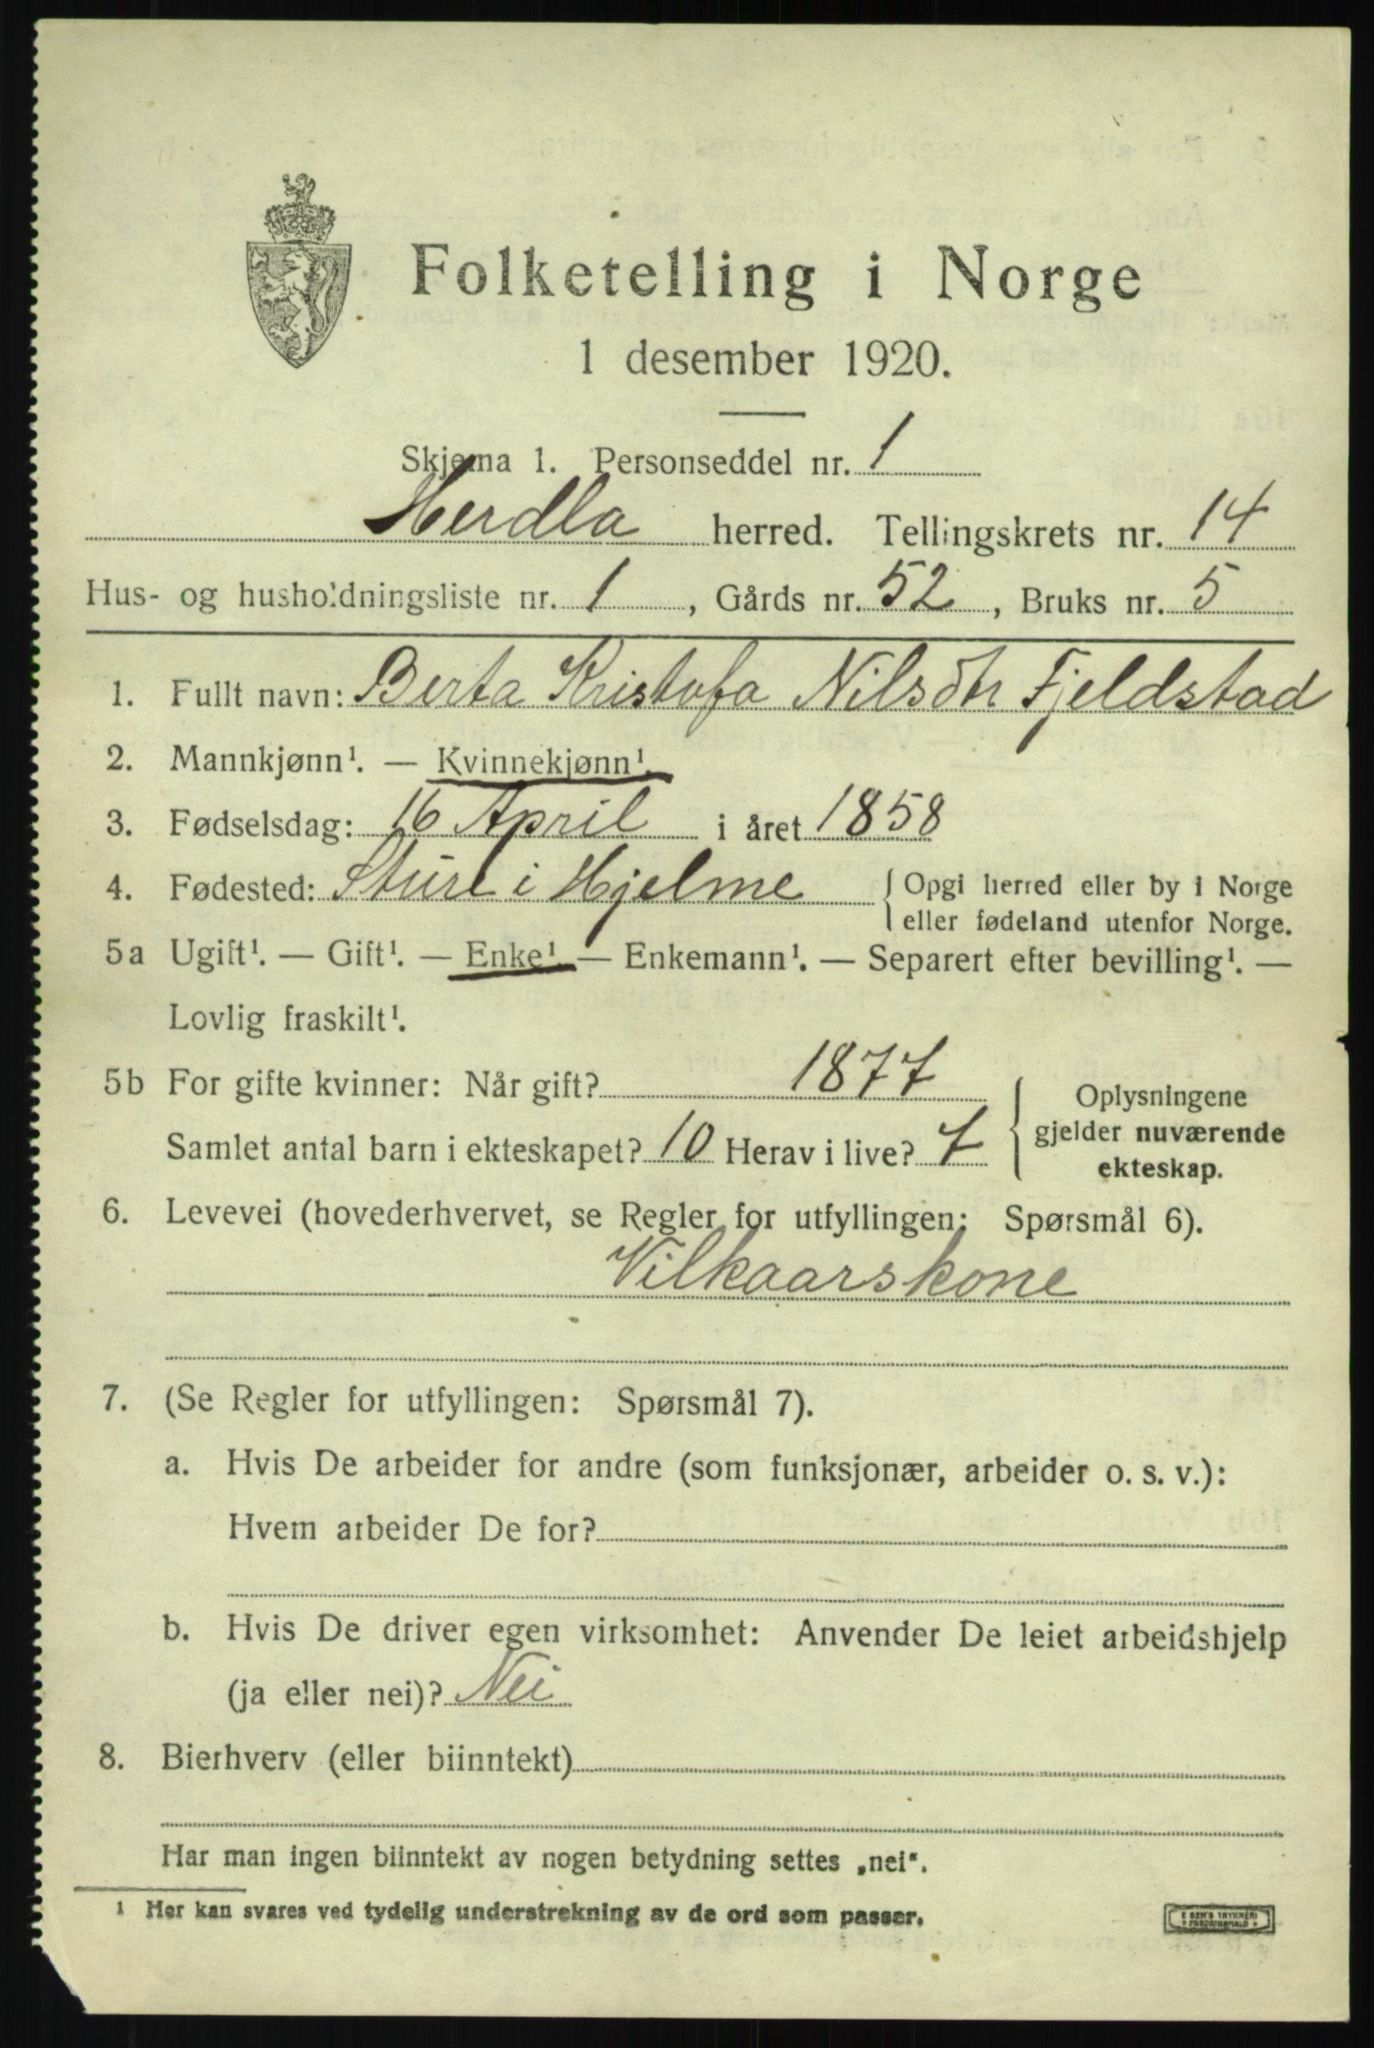 Folketelling i Norge
1 desember 1920.
Skjema 1. Personseddel nr. 1
Herdla herred. Tellingskrets nr. 14
Hus- og husholdningsliste nr. 1, Gårds nr. 52, Bruks nr. 5
1. Fullt navn: Berta Kristofa Nilsdtr Fjeldstad
2. Mannkjønn¹. — Kvinnekjønn¹.
3. Fødselsdag: 16 April i året 1858
4. Fødested: Sture i Hjelme { Opgi herred eller by i Norge
eller fødeland utenfor Norge.
5a Ugift¹. — Gift¹. — Enke¹ — Enkemann¹. — Separert efter bevilling¹. —
Lovlig fraskilt¹.
5b For gifte kvinner: Når gift? 1877
Samlet antal barn i ekteskapet? 10 Herav i live? 7
{ Oplysningene
gjelder nuværende
ekteskap.
6. Levevei (hovederhvervet, se Regler for utfyllingen: Spørsmål 6).
Vilkaarskone
7. (Se Regler for utfyllingen: Spørsmål 7).
a. Hvis De arbeider for andre (som funksjonær, arbeider o. s. v.):
Hvem arbeider De for?
b. Hvis De driver egen virksomhet: Anvender De leiet arbeidshjelp
(ja eller nei)? Nei
8. Bierhverv (eller biinntekt)
Har man ingen biinntekt av nogen betydning settes „nei“.
¹ Her kan svares ved tydelig understrekning av de ord som passer.